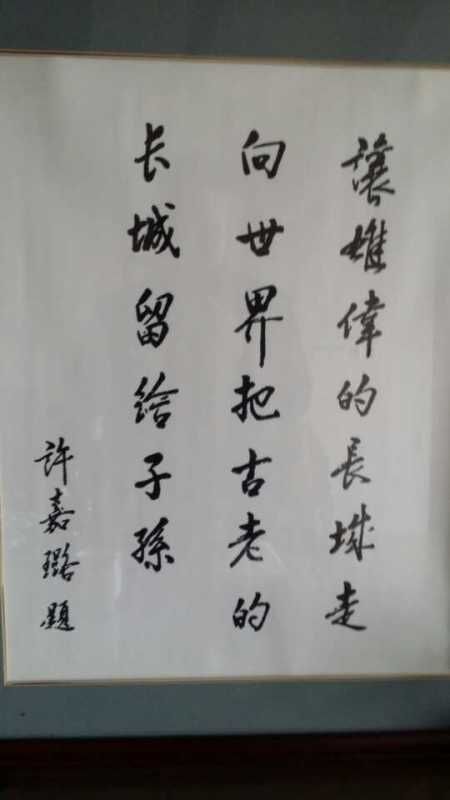 讓雄偉的長城走
向世界把古老的
长城留给子孫
許嘉璐題